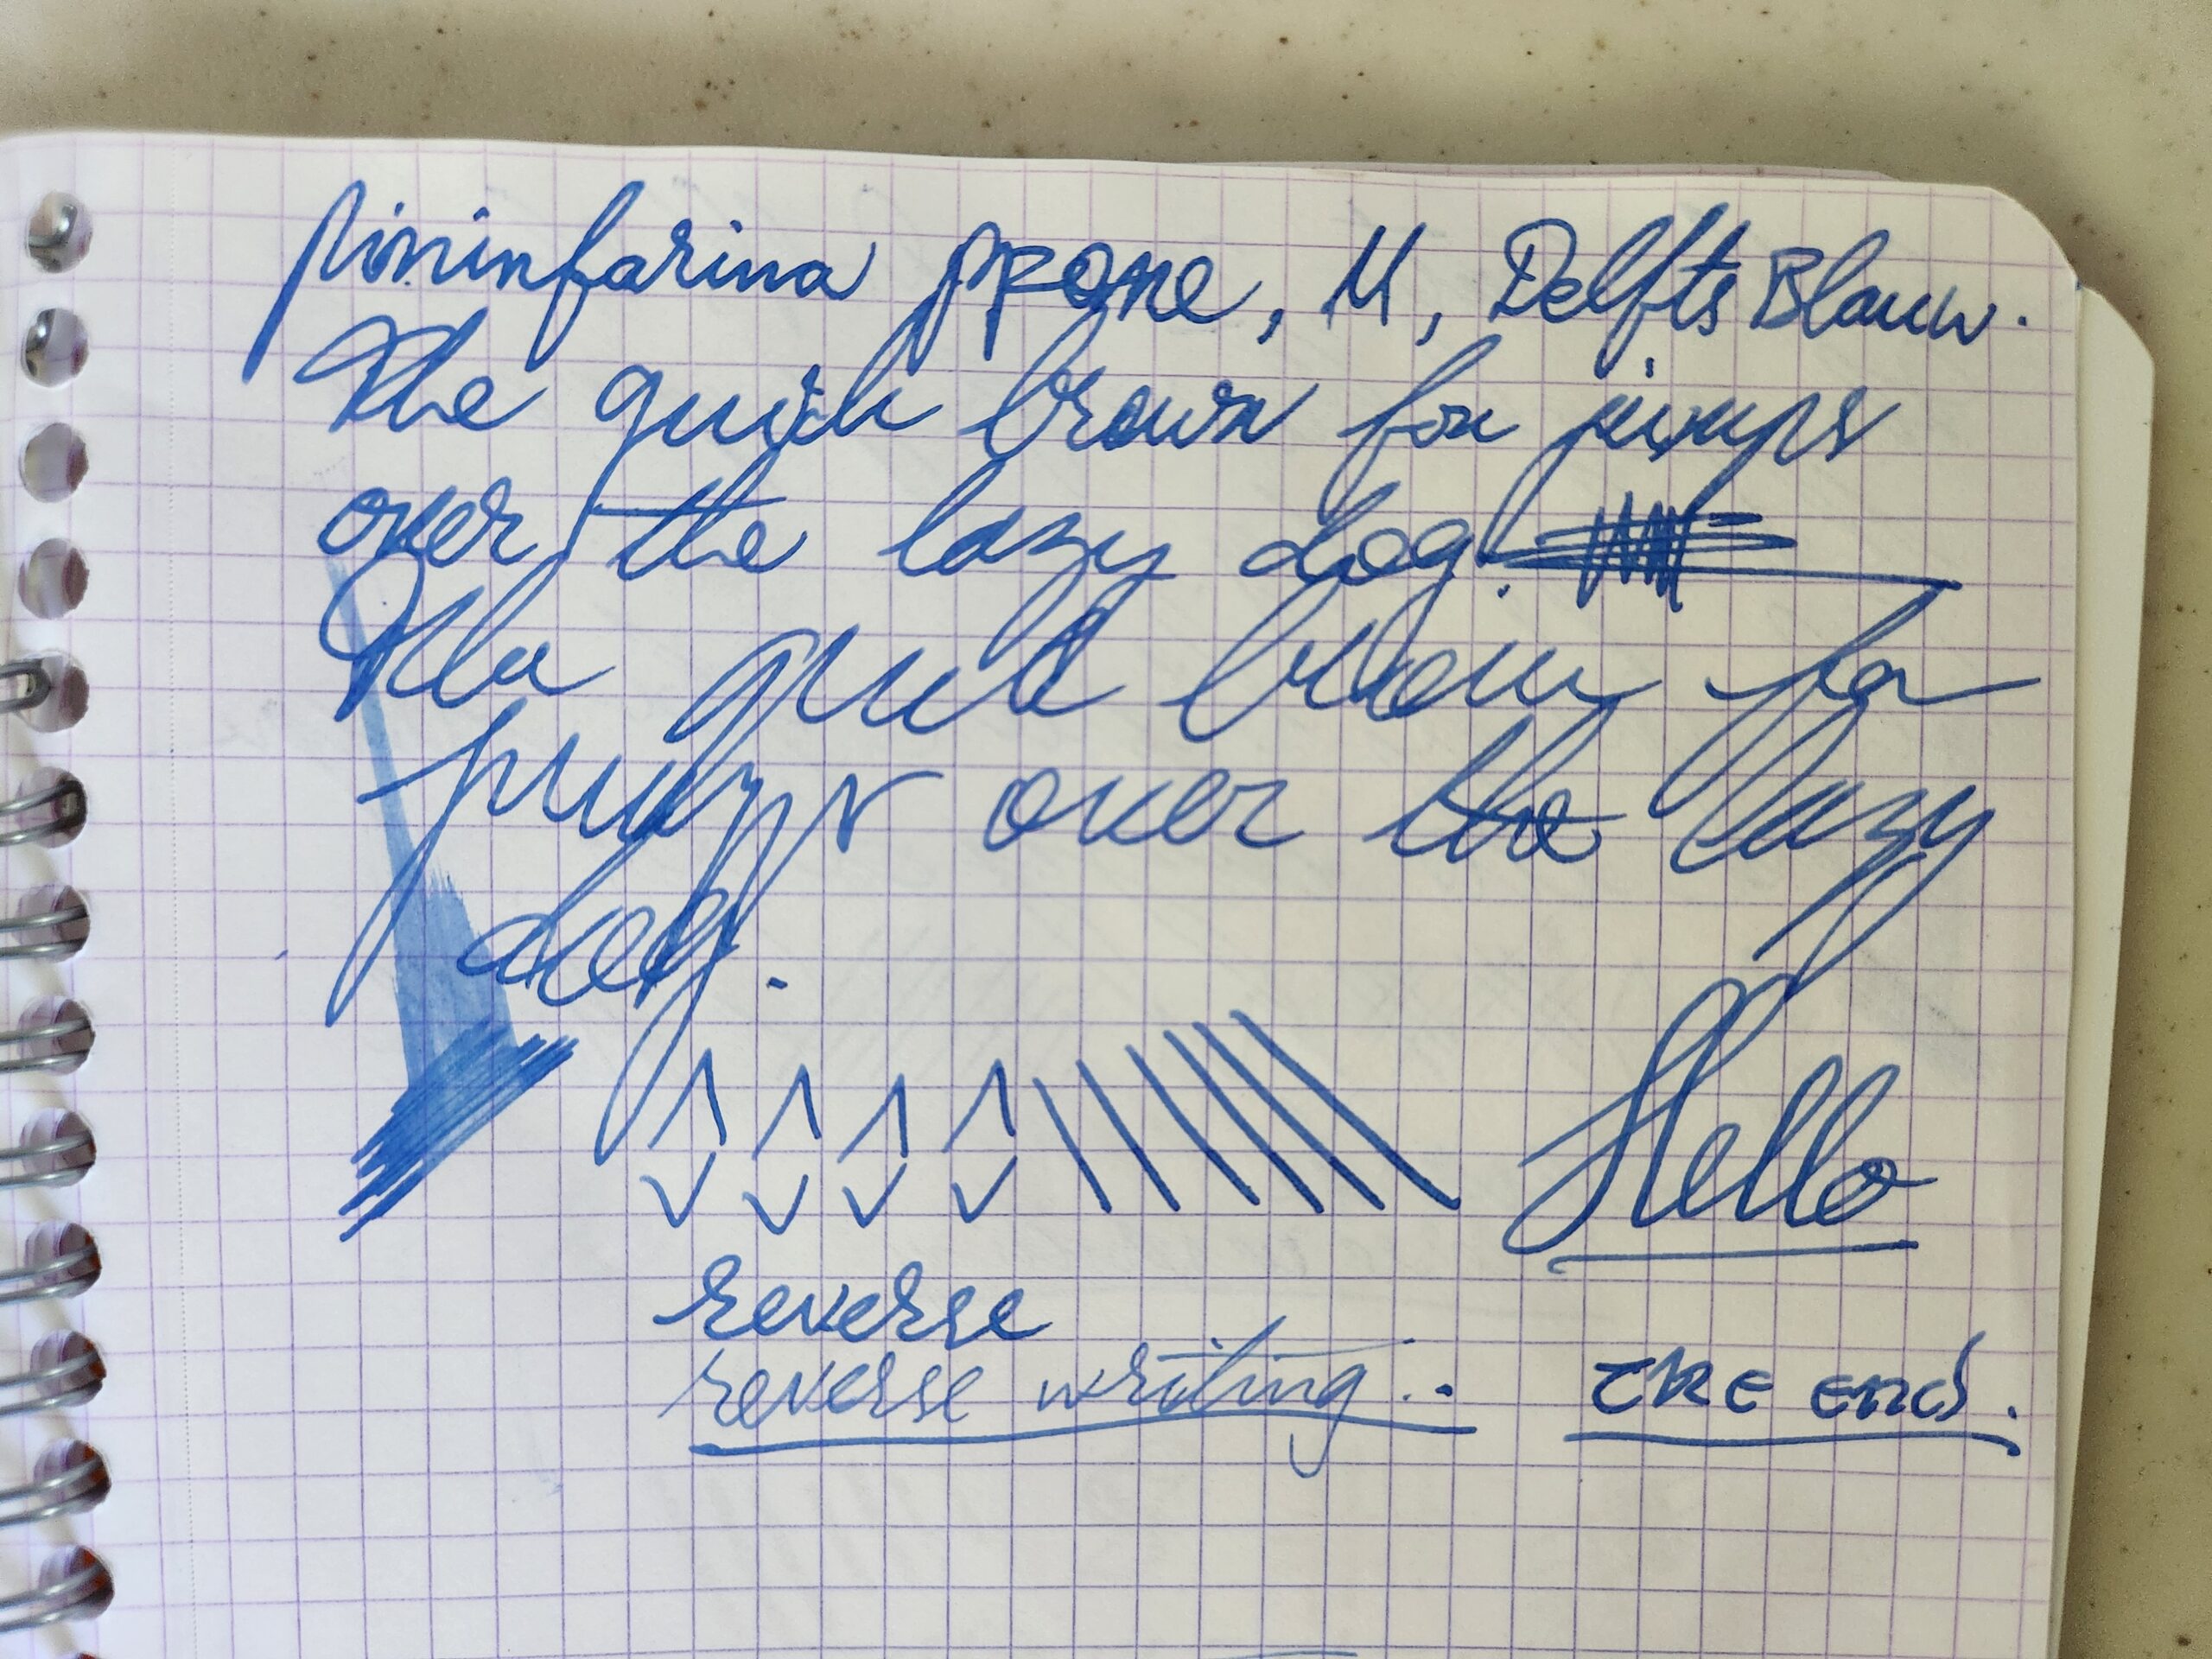 Pininfarina PF One, M, Delfts Blauw.
The quick brown fox jumps
over the lazy dog.
The quick brown fox
jumps over the lazy
dog.
Hello
reverse
reverse writing..
the end.